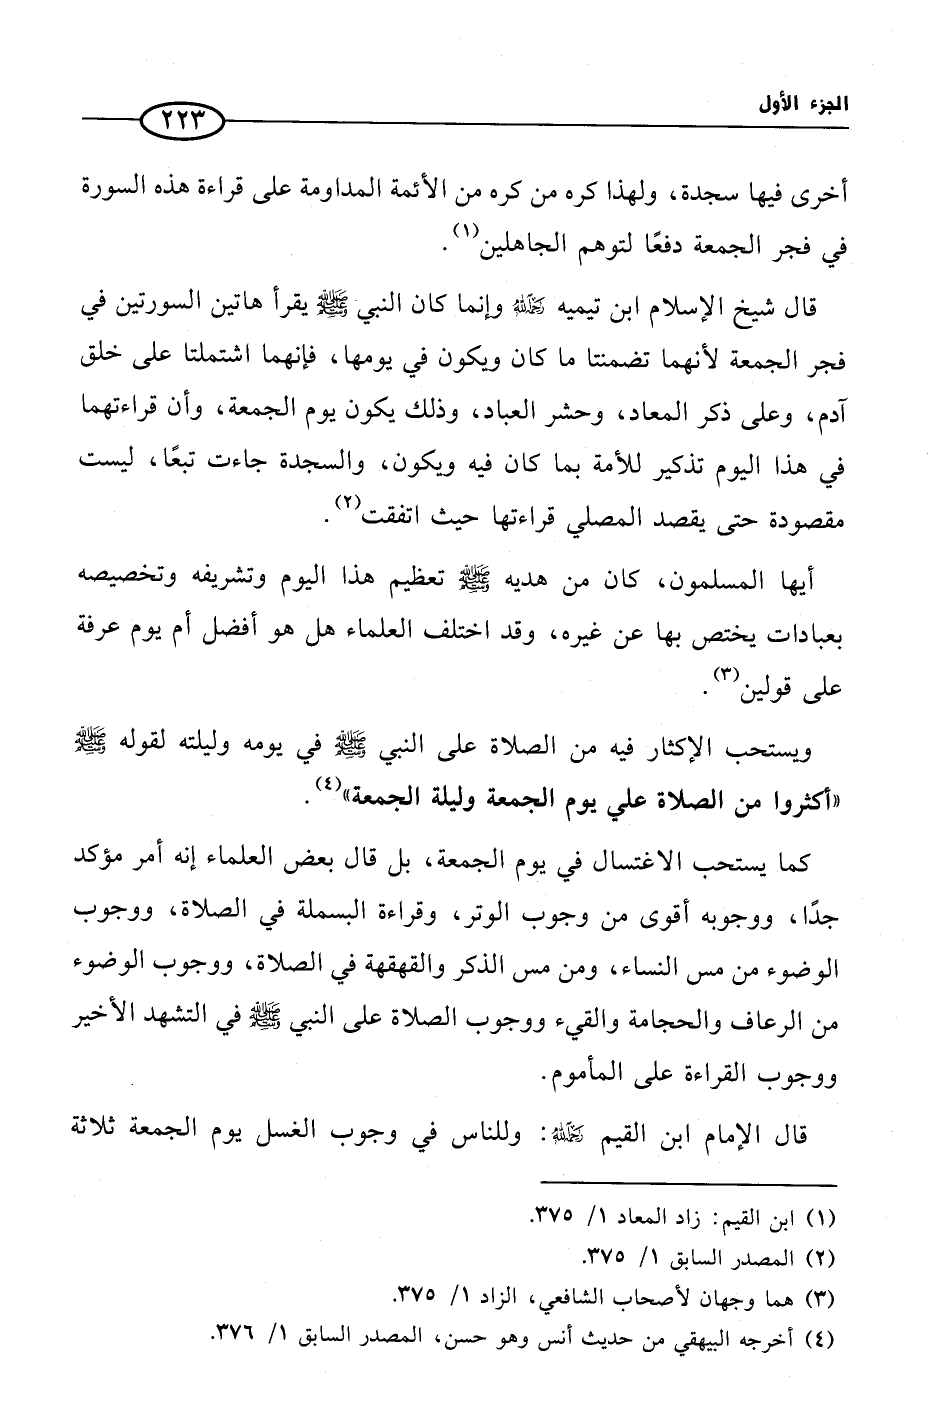 الجزء الأول
٢٢٣
أخرى فيها سجدة، ولهذا كره من كره من الأئمة المداومة على قراءة هذه السورة
في فجر الجمعة دفعًا لتوهم الجاهلين(١).
قال شيخ الإسلام ابن تيميه رحمه الله وإنما كان النبي ﷺ يقرأ هاتين السورتين في
فجر الجمعة لأنهما تضمنتا ما كان ويكون في يومها، فإنهما اشتملتا على خلق
آدم، وعلى ذكر المعاد، وحشر العباد، وذلك يكون يوم الجمعة، وأن قراءتهما
في هذا اليوم تذكير للأمة بما كان فيه ويكون، والسجدة جاءت تبعًا، ليست
مقصودة حتى يقصد المصلي قراءتها حيث اتفقت(٢).
أيها المسلمون، كان من هديه ﷺ تعظيم هذا اليوم وتشريفه وتخصيصه
بعبادات يختص بها عن غيره، وقد اختلف العلماء هل هو أفضل أم يوم عرفة
على قولين(٣).
ويستحب الإكثار فيه من الصلاة على النبي ﷺ في يومه وليلته لقوله ﷺ
«أكثروا من الصلاة علي يوم الجمعة وليلة الجمعة»(٤).
كما يستحب الاغتسال في يوم الجمعة، بل قال بعض العلماء إنه أمر مؤكد
جدًا، ووجوبه أقوى من وجوب الوتر، وقراءة البسملة في الصلاة، ووجوب
الوضوء من مس النساء، ومن مس الذكر والقهقهة في الصلاة، ووجوب الوضوء
من الرعاف والحجامة والقيء ووجوب الصلاة على النبي ﷺ في التشهد الأخير
ووجوب القراءة على المأموم.
قال الإمام ابن القيم رحمه الله: وللناس في وجوب الغسل يوم الجمعة ثلاثة
(١) ابن القيم: زاد المعاد ١/ ٣٧٥.
(٢) المصدر السابق ١/ ٣٧٥.
(٣) هما وجهان لأصحاب الشافعي، الزاد ١/ ٣٧٥.
(٤) أخرجه البيهقي من حديث أنس وهو حسن، المصدر السابق ١/ ٣٧٦.